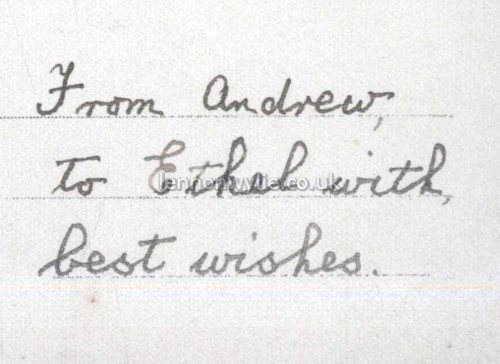 From Andrew,
to Ethel with,
lennonwylie.co.uk
best wishes.